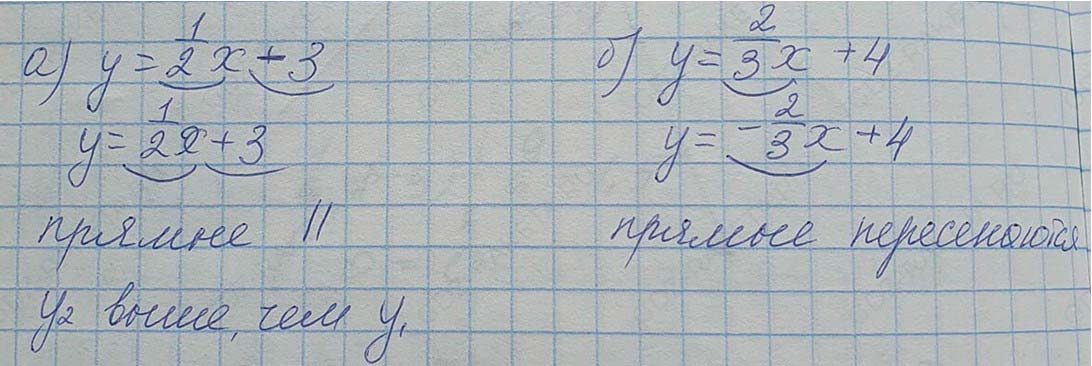 а) y = 1/2 x + 3
y = 1/2 x + 3
прямые ||
y₂ выше, чем y₁
б) y = 2/3 x + 4
y = -2/3 x + 4
прямые пересекаются